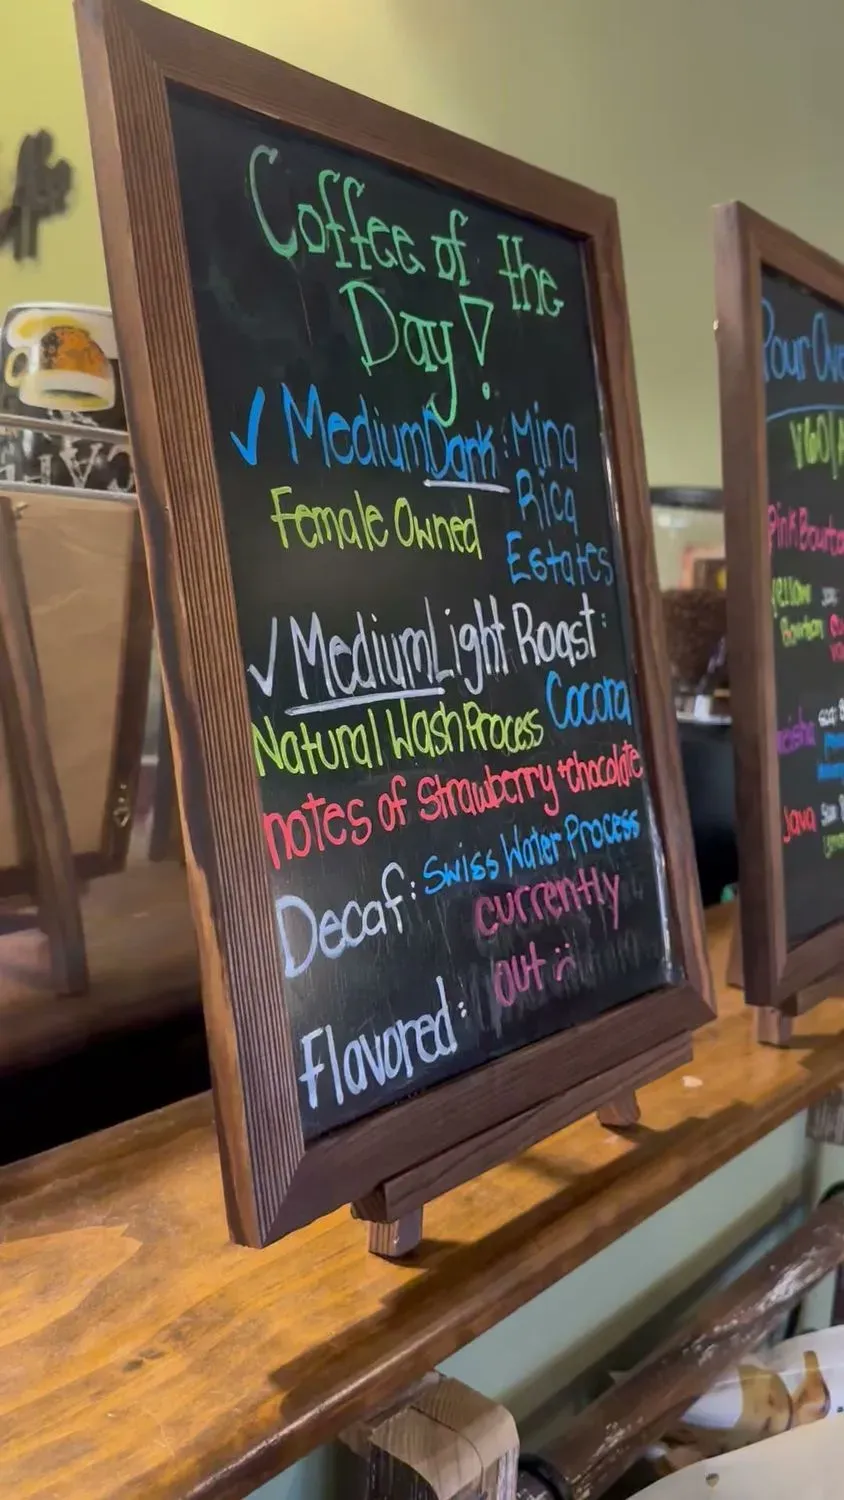 Coffee of the
Day!
✓ Medium Dark: Mina
Female Owned Rica
Estates
✓ Medium Light Roast:
Natural Wash Process Cocora
notes of strawberry + chocolate
Decaf: Swiss Water Process
Flavored: currently
out :(
Pour Ove
V60/A
Pink Bourbo
Yellow
Bourbon
eisha
Java